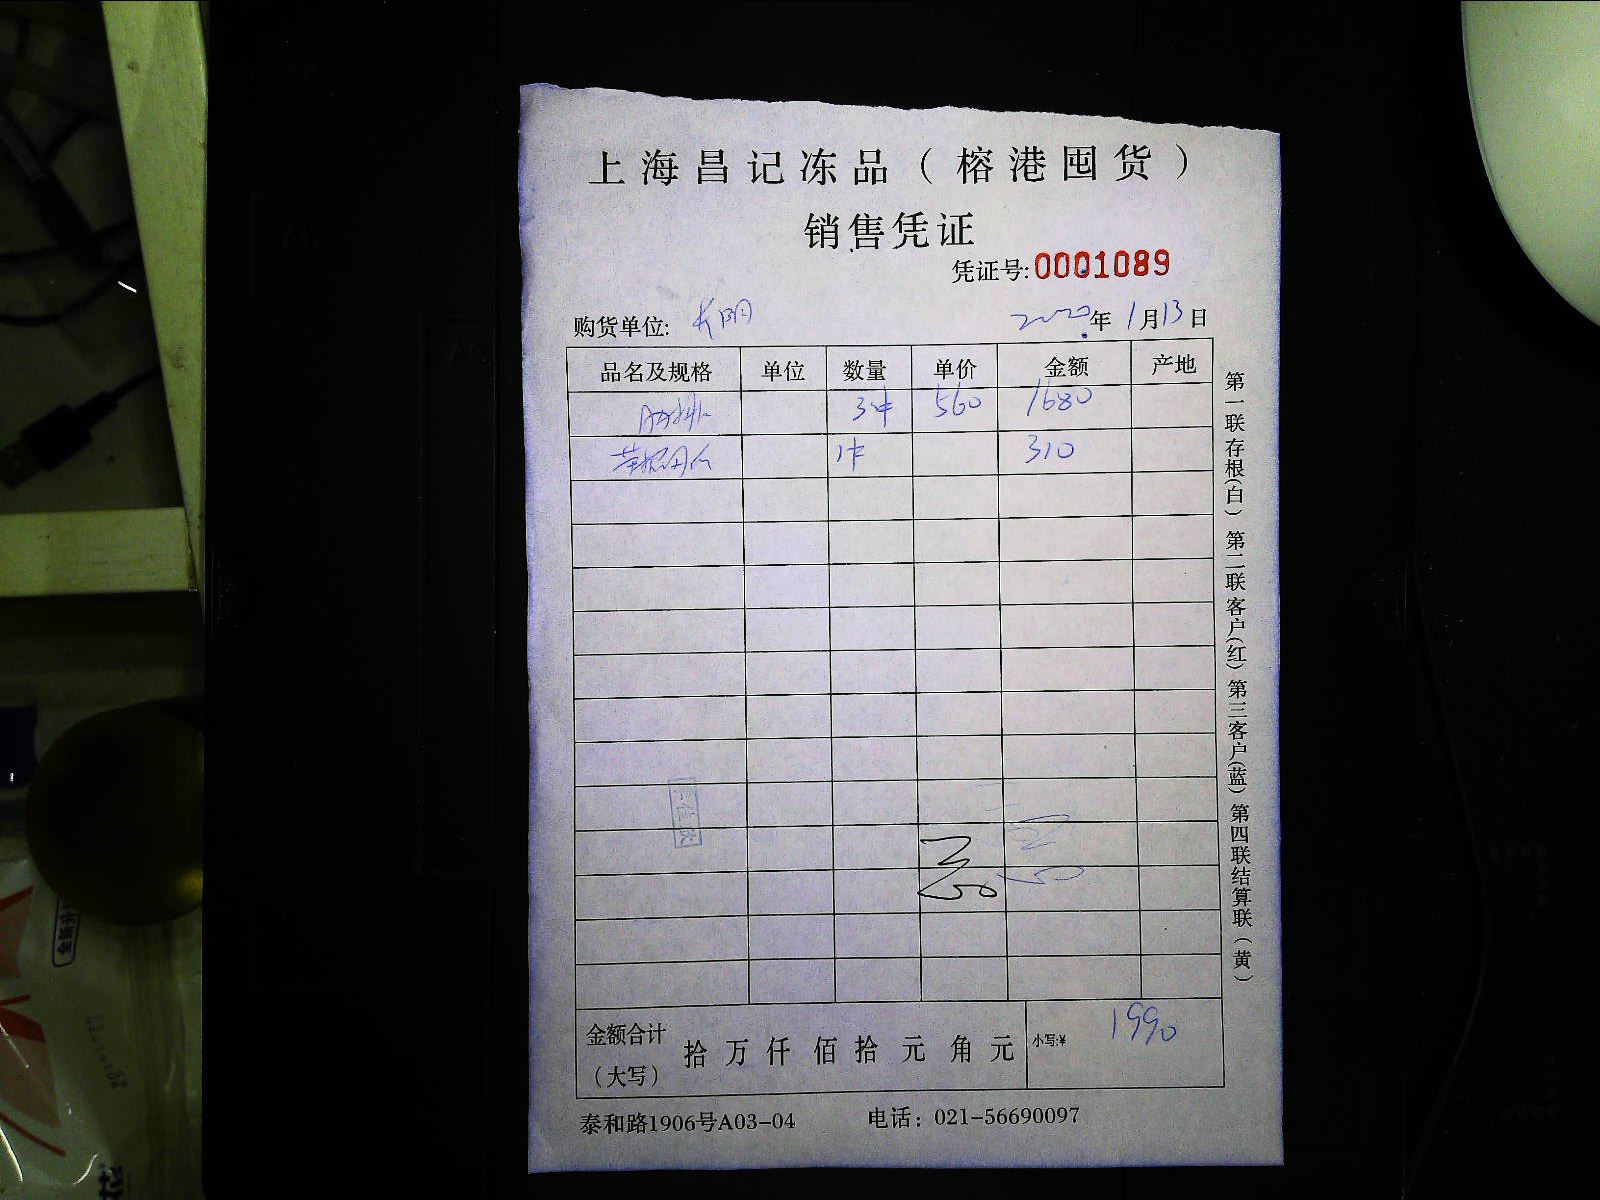 上海昌记冻品（榕港囤货）
销售凭证
凭证号:0001089
购货单位: 2020年1月13日
品名及规格 单位 数量 单价 金额 产地
3件 560 1680
1件 310
金额合计（大写） 拾 万 仟 佰 拾 元 角 元 小写:¥ 1990
泰和路1906号A03-04 电话：021-56690097
第一联存根(白) 第二联客户(红) 第三客户(蓝) 第四联结算联(黄)